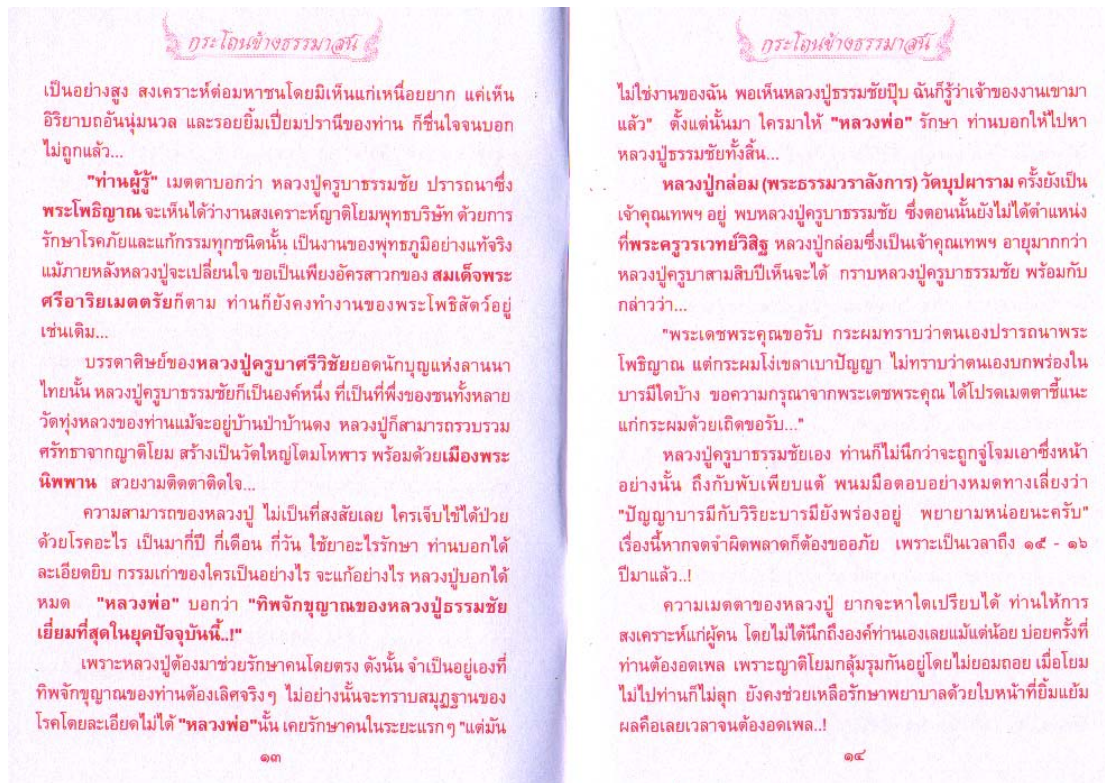 กระโถนข้างธรรมาสน์
เป็นอย่างสูง สงเคราะห์ต่อมหาชนโดยมิเห็นแก่เหนื่อยยาก แค่เห็น
อิริยาบถอันนุ่มนวล และรอยยิ้มเปี่ยมปรานีของท่าน ก็ชื่นใจจนบอก
ไม่ถูกแล้ว...
"ท่านผู้รู้" เมตตาบอกว่า หลวงปู่ครูบาธรรมชัย ปรารถนาซึ่ง
พระโพธิญาณ จะเห็นได้ว่างานสงเคราะห์ญาติโยมพุทธบริษัท ด้วยการ
รักษาโรคภัยและแก้กรรมทุกชนิดนั้น เป็นงานของพุทธภูมิอย่างแท้จริง
แม้ภายหลังหลวงปู่จะเปลี่ยนใจ ขอเป็นเพียงอัครสาวกของ สมเด็จพระ
ศรีอาริยเมตตรัยก็ตาม ท่านก็ยังคงทำงานของพระโพธิสัตว์อยู่
เช่นเดิม...
บรรดาศิษย์ของหลวงปู่ครูบาศรีวิชัยยอดนักบุญแห่งลานนา
ไทยนั้น หลวงปู่ครูบาธรรมชัยก็เป็นองค์หนึ่ง ที่เป็นที่พึ่งของชนทั้งหลาย
วัดทุ่งหลวงของท่านแม้จะอยู่บ้านป่าบ้านดง หลวงปู่ก็สามารถรวบรวม
ศรัทธาจากญาติโยม สร้างเป็นวัดใหญ่โตมโหฬาร พร้อมด้วยเมืองพระ
นิพพาน สวยงามติดตาติดใจ...
ความสามารถของหลวงปู่ ไม่เป็นที่สงสัยเลย ใครเจ็บไข้ได้ป่วย
ด้วยโรคอะไร เป็นมากี่ปี กี่เดือน กี่วัน ใช้ยาอะไรรักษา ท่านบอกได้
ละเอียดยิบ กรรมเก่าของใครเป็นอย่างไร จะแก้อย่างไร หลวงปู่บอกได้
หมด "หลวงพ่อ" บอกว่า "ทิพจักขุญาณของหลวงปู่ธรรมชัย
เยี่ยมที่สุดในยุคปัจจุบันนี้..!"
เพราะหลวงปู่ต้องมาช่วยรักษาคนโดยตรง ดังนั้น จำเป็นอยู่เองที่
ทิพจักขุญาณของท่านต้องเลิศจริงๆ ไม่อย่างนั้นจะทราบสมุฏฐานของ
โรคโดยละเอียดไม่ได้ "หลวงพ่อ"นั้น เคยรักษาคนในระยะแรกๆ "แต่มัน
๑๓
กระโถนข้างธรรมาสน์
ไม่ใช่งานของฉัน พอเห็นหลวงปู่ธรรมชัยปุ๊บ ฉันก็รู้ว่าเจ้าของงานเขามา
แล้ว" ตั้งแต่นั้นมา ใครมาให้ "หลวงพ่อ" รักษา ท่านบอกให้ไปหา
หลวงปู่ธรรมชัยทั้งสิ้น...
หลวงปู่กล่อม (พระธรรมวราลังการ) วัดบุปผาราม ครั้งยังเป็น
เจ้าคุณเทพฯ อยู่ พบหลวงปู่ครูบาธรรมชัย ซึ่งตอนนั้นยังไม่ได้ตำแหน่ง
ที่พระครูวรเวทย์วิสิฐ หลวงปู่กล่อมซึ่งเป็นเจ้าคุณเทพฯ อายุมากกว่า
หลวงปู่ครูบาสามสิบปีเห็นจะได้ กราบหลวงปู่ครูบาธรรมชัย พร้อมกับ
กล่าวว่า...
"พระเดชพระคุณขอรับ กระผมทราบว่าตนเองปรารถนาพระ
โพธิญาณ แต่กระผมโง่เขลาเบาปัญญา ไม่ทราบว่าตนเองบกพร่องใน
บารมีใดบ้าง ขอความกรุณาจากพระเดชพระคุณ ได้โปรดเมตตาชี้แนะ
แก่กระผมด้วยเถิดขอรับ..."
หลวงปู่ครูบาธรรมชัยเอง ท่านก็ไม่นึกว่าจะถูกจู่โจมเอาซึ่งหน้า
อย่างนั้น ถึงกับพับเพียบแต้ พนมมือตอบอย่างหมดทางเลี่ยงว่า
"ปัญญาบารมีกับวิริยะบารมียังพร่องอยู่ พยายามหน่อยนะครับ"
เรื่องนี้หากจดจำผิดพลาดก็ต้องขออภัย เพราะเป็นเวลาถึง ๑๕ - ๑๖
ปีมาแล้ว..!
ความเมตตาของหลวงปู่ ยากจะหาใดเปรียบได้ ท่านให้การ
สงเคราะห์แก่ผู้คน โดยไม่ได้นึกถึงองค์ท่านเองเลยแม้แต่น้อย บ่อยครั้งที่
ท่านต้องอดเพล เพราะญาติโยมกลุ้มรุมกันอยู่โดยไม่ยอมถอย เมื่อโยม
ไม่ไปท่านก็ไม่ลุก ยังคงช่วยเหลือรักษาพยาบาลด้วยใบหน้าที่ยิ้มแย้ม
ผลคือเลยเวลาจนต้องอดเพล..!
๑๔